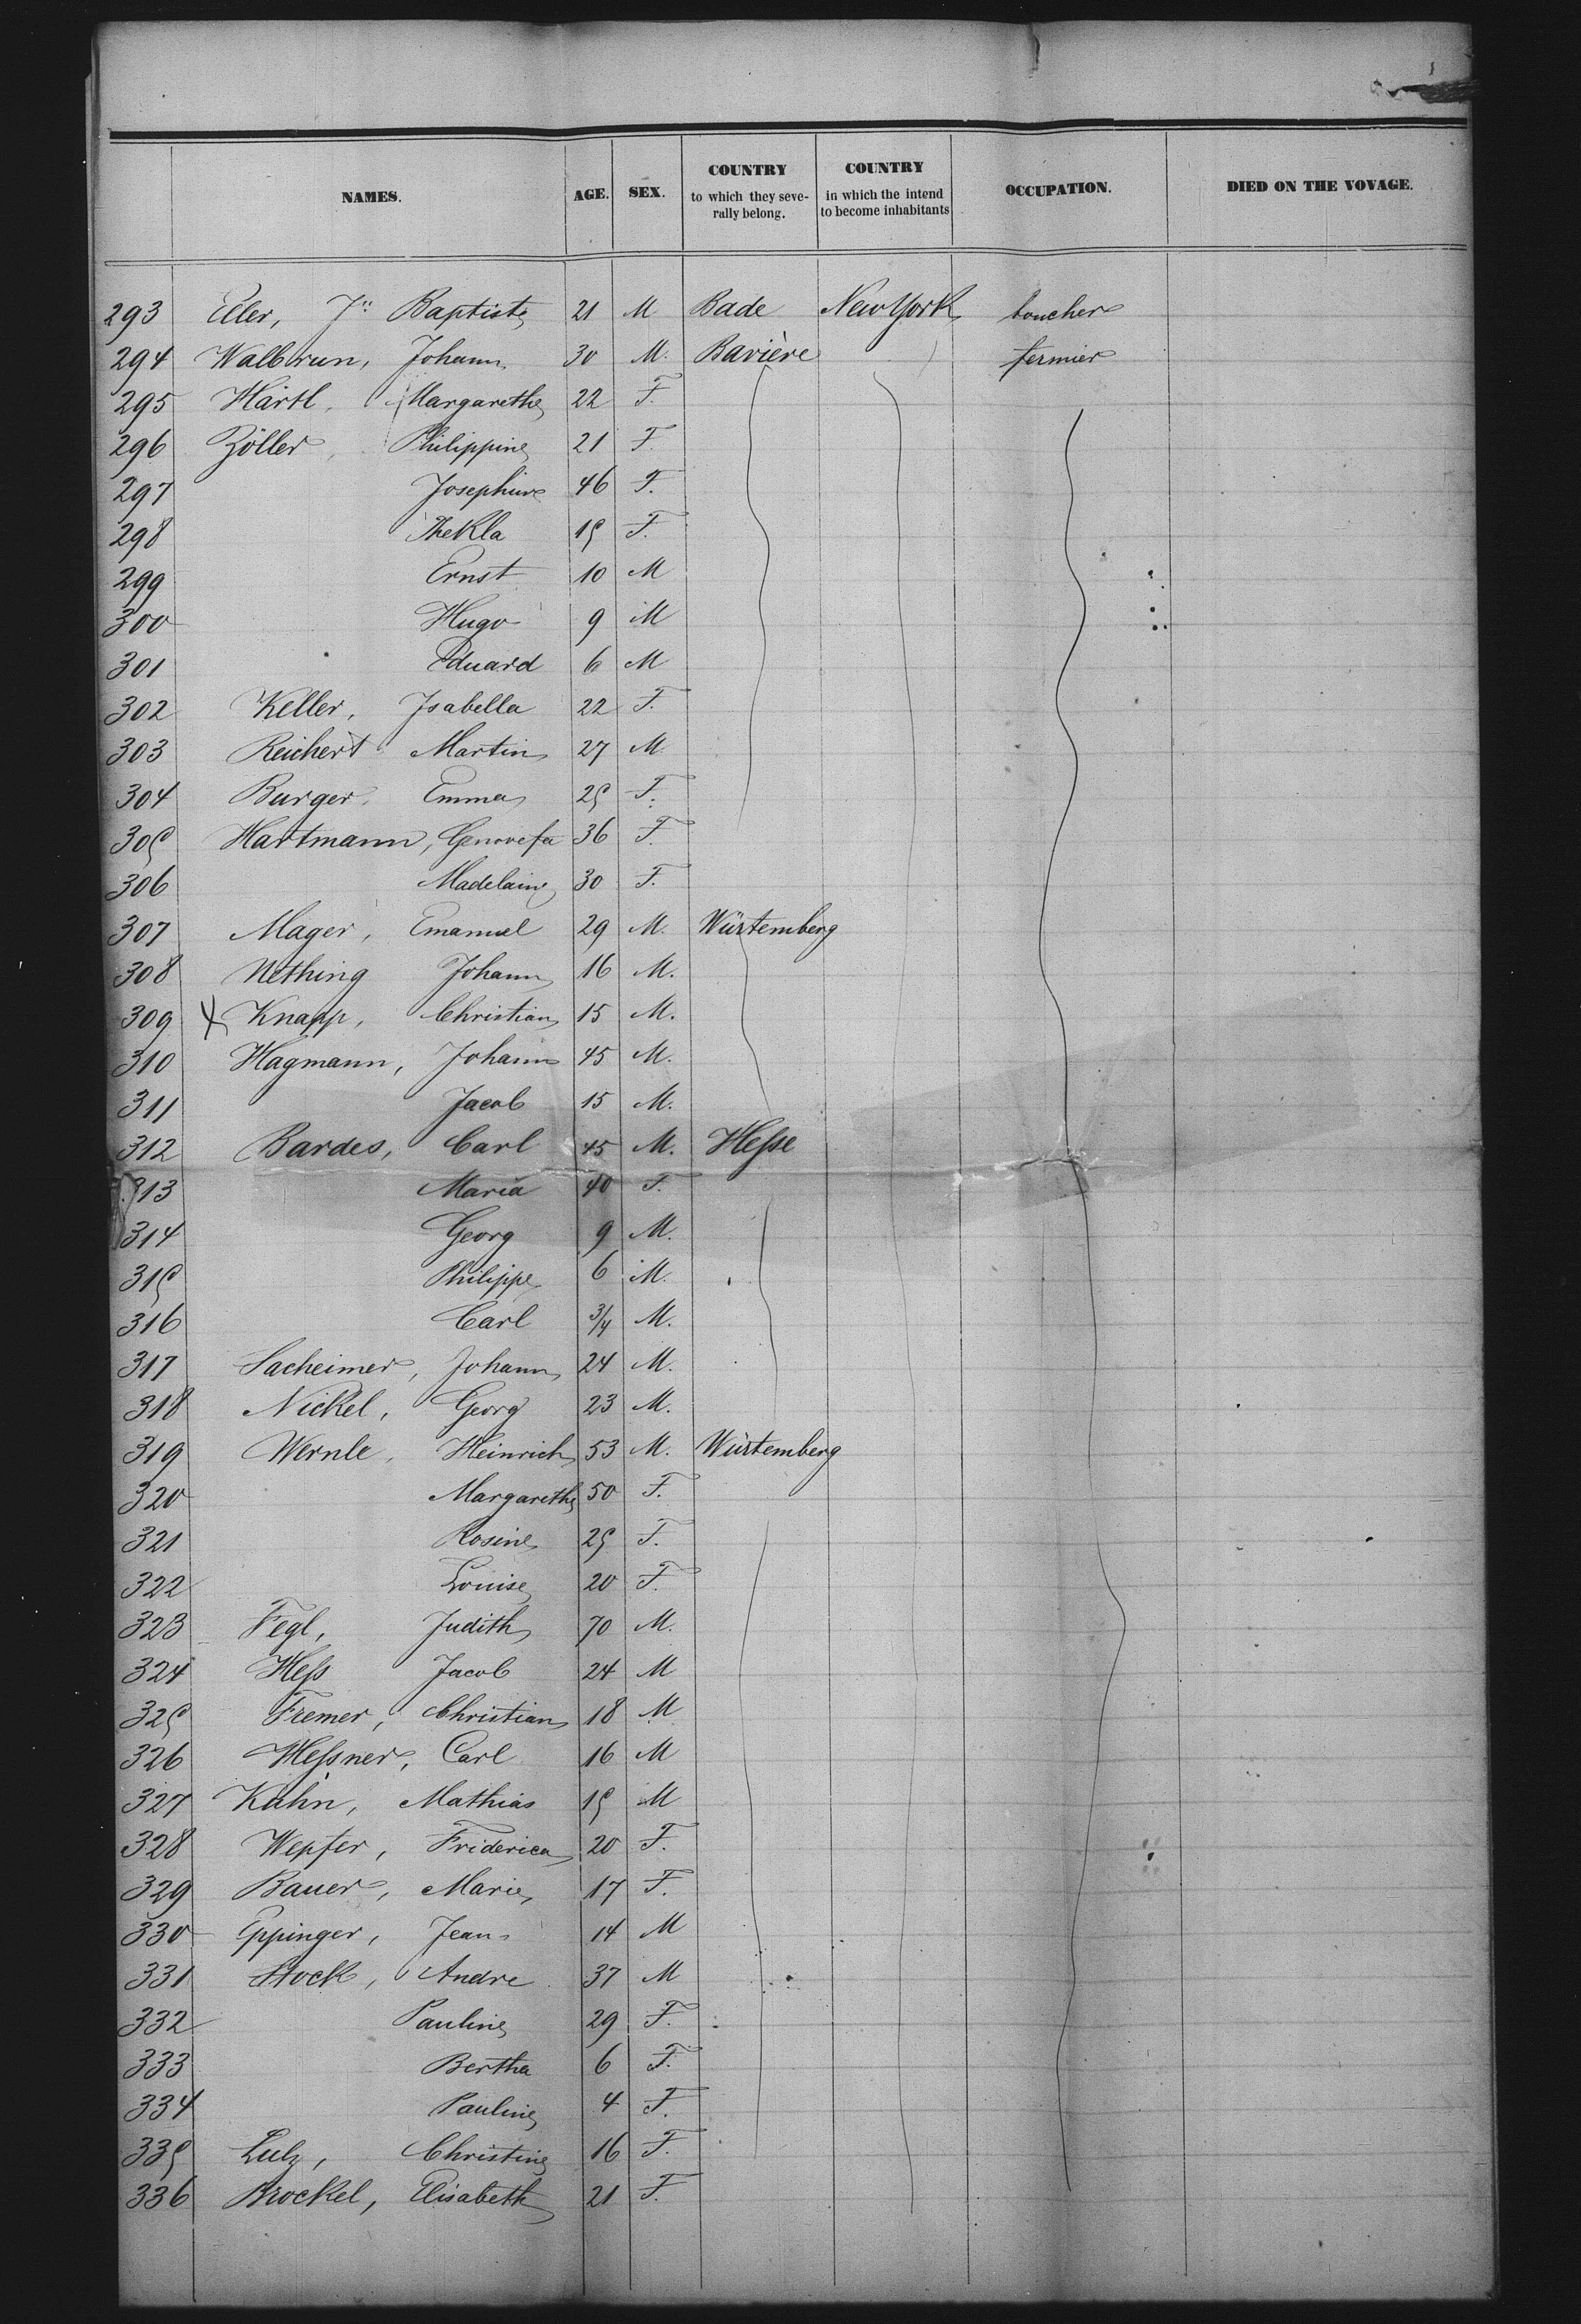 NAMES. AGE. SEX. COUNTRY to which they seve- rally belong. COUNTRY in which the intend to become inhabitants OCCUPATION. DIED ON THE VOVAGE.
293 Eller, Jn Baptiste 21 M Bade New York boucher
294 Walbrun, Johann 30 M. Bavière fermier
295 Härtl, Margarethe 22 F.
296 Zöller, Philippine 21 F.
297 Josephine 46 F.
298 Thekla 15 F.
299 Ernst 10 M
300 Hugo 9 M
301 Eduard 6 M
302 Keller, Isabella 22 F.
303 Reichert Martin 27 M
304 Burger, Emma 25 F.
305 Hartmann, Genovefa 36 F.
306 Madelaine 30 F.
307 Mager, Emanuel 29 M. Würtemberg
308 Nething Johann 16 M.
309 X Knapp, Christian 15 M.
310 Hagmann, Johann 45 M.
311 Jacob 15 M.
312 Bardes, Carl 45 M. Hesse
313 Maria 40 F.
314 Georg 9 M.
315 Philippe 6 M.
316 Carl 3/4 M.
317 Sacheimer, Johann 24 M.
318 Nickel, Georg 23 M.
319 Wernle, Heinrich 53 M. Würtemberg
320 Margarethe 50 F.
321 Rosine 25 F.
322 Louise 20 F.
323 Fegl, Judith 70 M.
324 Hess Jacob 24 M
325 Fremer, Christian 18 M
326 Hessner, Carl 16 M
327 Kuhn, Mathias 15 M
328 Wepfer, Friderica 20 F.
329 Bauer, Marie 17 F.
330 Eppinger, Jean 14 M
331 Stock, Andre 37 M
332 Pauline 29 F.
333 Bertha 6 F.
334 Pauline 4 F.
335 Lulz, Christine 16 F.
336 Brockel, Elisabeth 21 F.